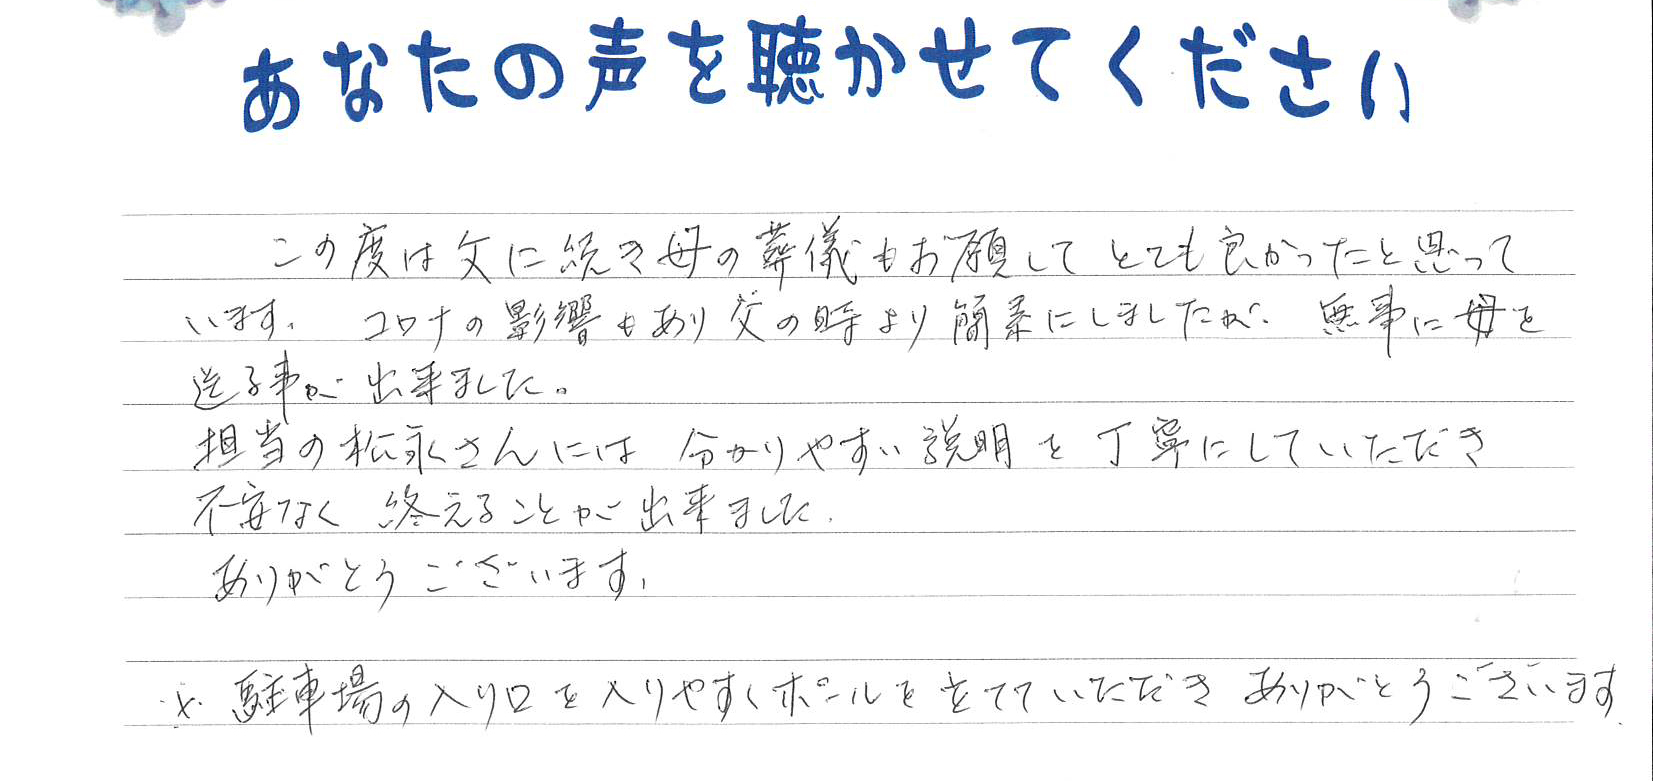 あなたの声を聴かせてください
この度は父に続き母の葬儀もお願してとても良かったと思って
います。コロナの影響もあり父の時より簡素にしましたが、無事に母を
送る事が出来ました。
担当の松永さんには分かりやすい説明を丁寧にしていただき
不安なく終えることが出来ました。
ありがとうございます。
※駐車場の入り口を入りやすくポールを立てていただきありがとうございます。